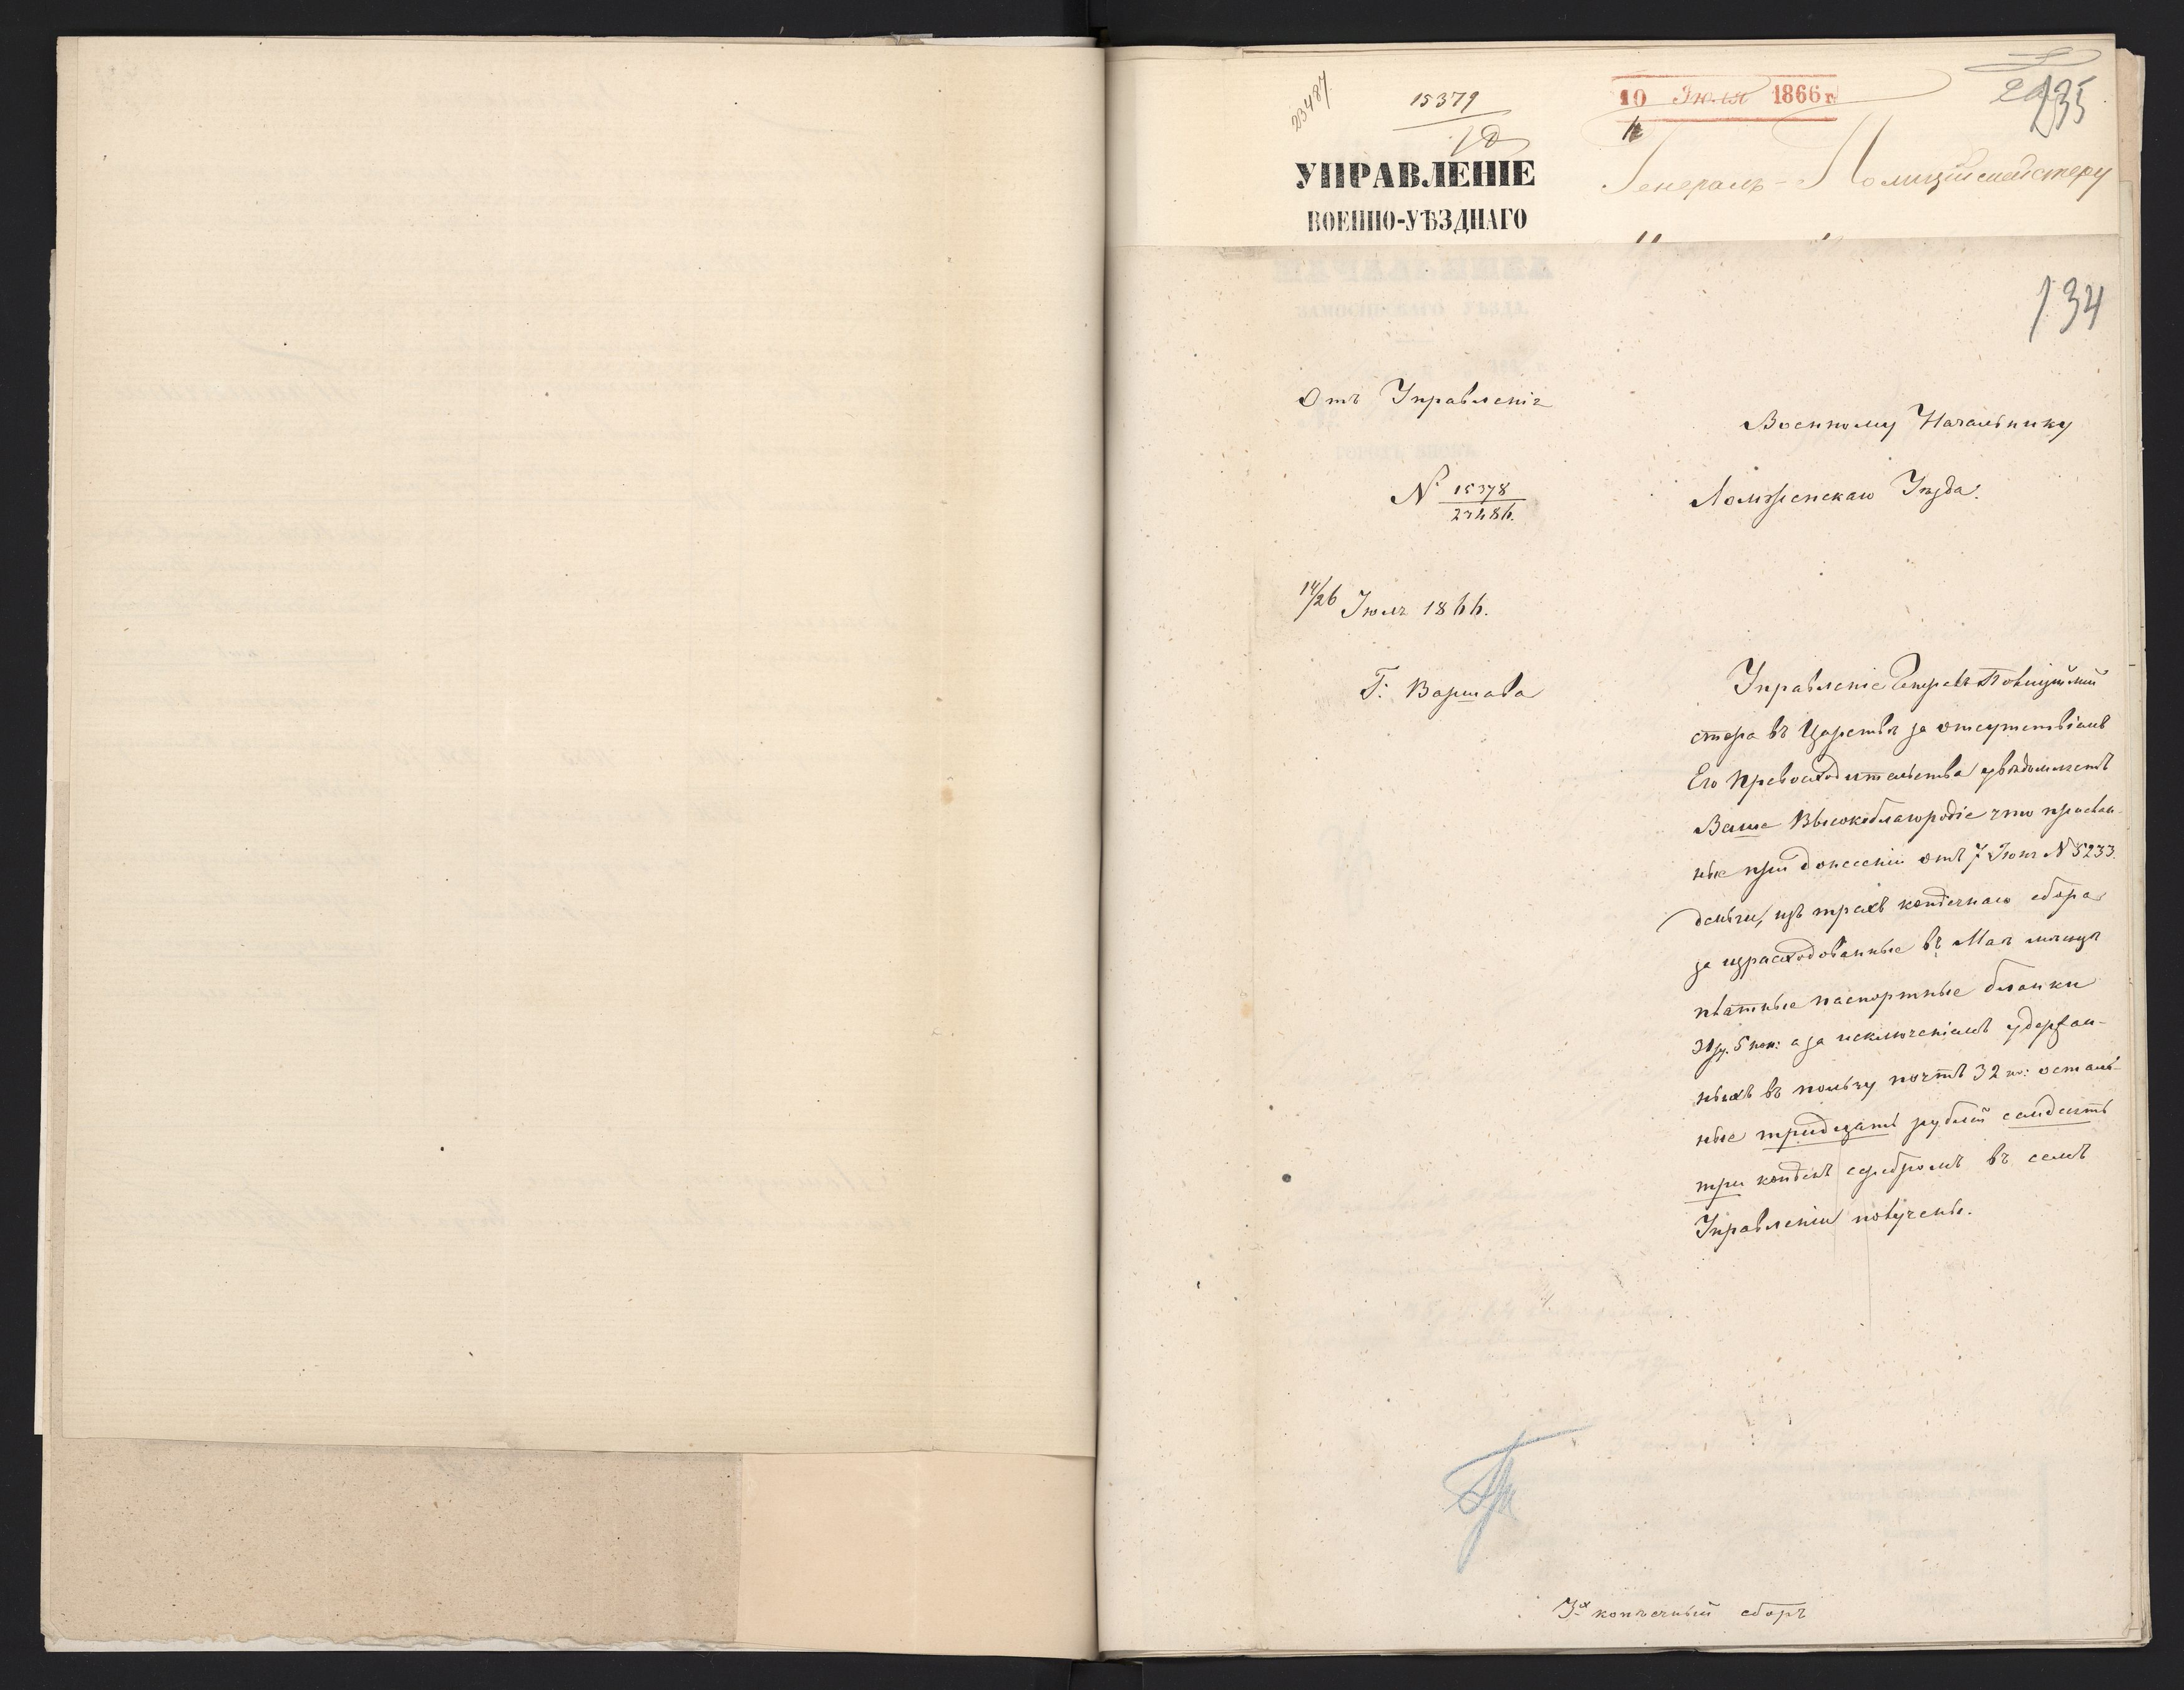 23487
15379
10 Іюля 1866 г.
135
УПРАВЛЕНІЕ
ВОЕННО-УѢЗДНАГО
Генералъ-Полиціймейстеру
134
Отъ Управленія
Военному Начальнику
Ломженскаго Уѣзда.
N 15378
23486.
14/26 Іюля 1866.
Г. Варшава
Управленіе Генералъ Полиціймей
стера въ Царствѣ за отсутствіемъ
Его Превосходительства увѣдомляетъ
Ваше Высокоблагородіе что прислан-
ные при донесеніи отъ 7 Іюня N 5233.
деньги, изъ трехъ копѣечнаго сбора
за израсходованные въ Маѣ мѣсяцѣ
платные паспортные бланки
31 р. 5 коп: а за исключеніемъ удержан-
ныхъ въ пользу почтъ 32 к: осталь-
ные тридцать рублей семдесятъ
три копѣекъ серебромъ въ семъ
Управленіи получены.
3х копѣечный сборъ